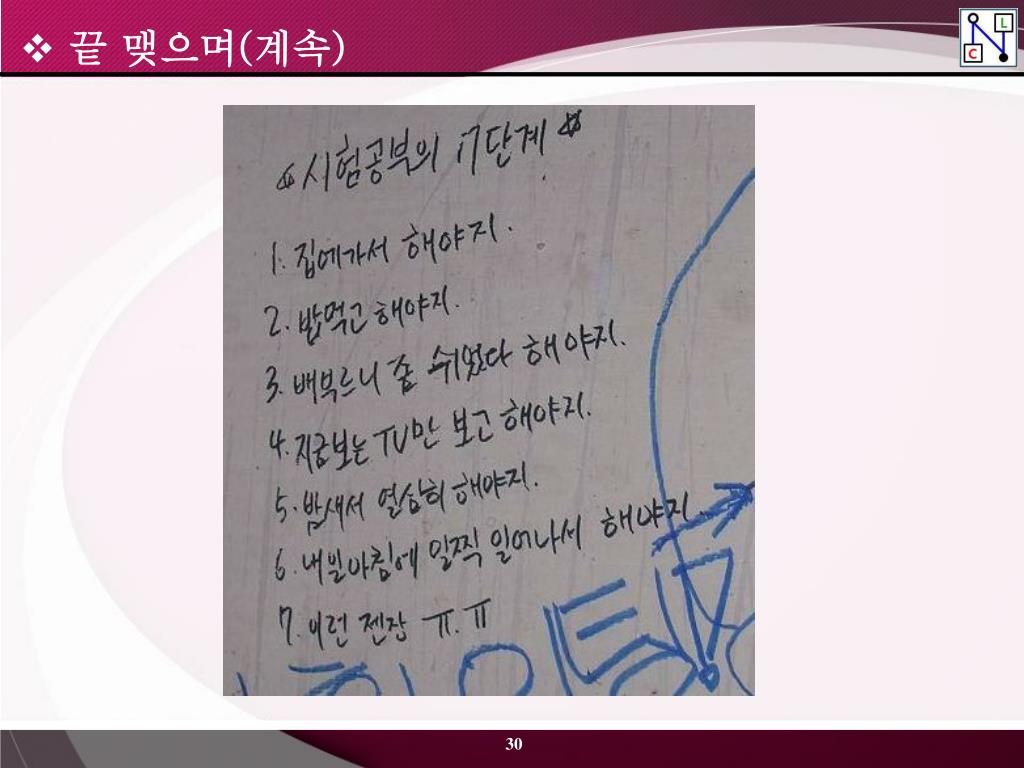 ❖ 끝 맺으며(계속)
L
N
C
☆시험공부의 17단계☆
1. 집에가서 해야지.
2. 밥먹고 해야지.
3. 배부르니 좀 쉬었다 해야지.
4. 지금보는 TV만 보고 해야지.
5. 밤새서 열심히 해야지.
6. 내일아침에 일찍 일어나서 해야지.
7. 이런 젠장 ㅠ.ㅠ
30